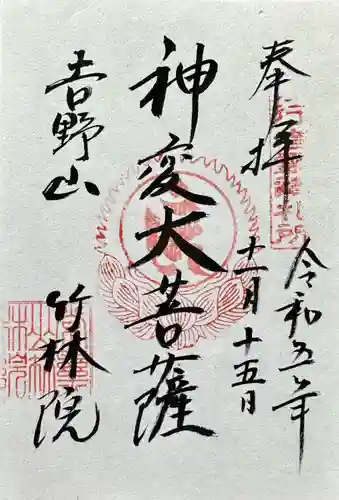 奉拝
令和五年
十一月十五日
神変大菩薩
吉野山
竹林院